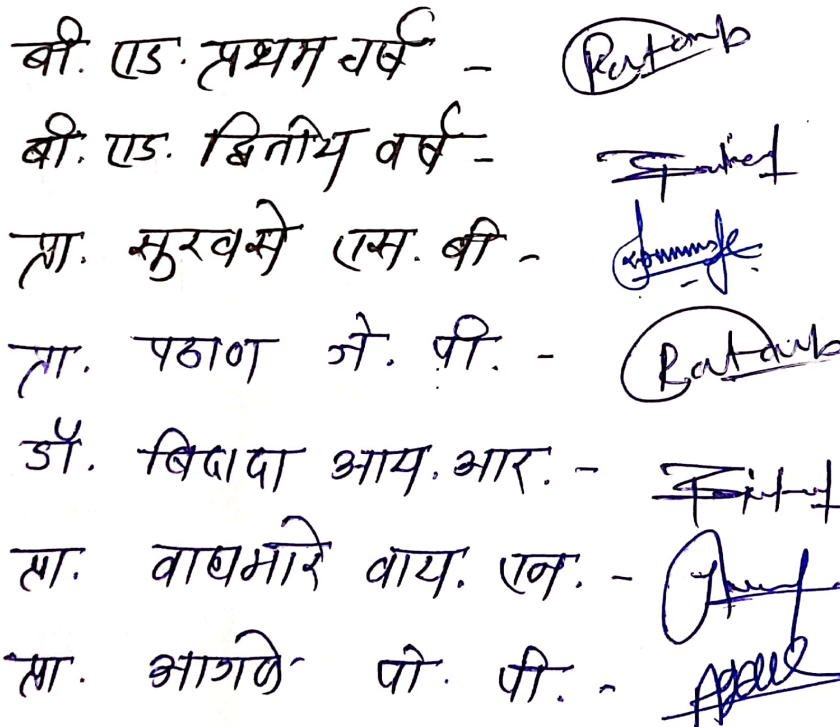 बी. एड. प्रथम वर्ष -
बी. एड. द्वितीय वर्ष -
प्रा. सुरवसे एस. बी -
प्रा. पठाण जे. पी. -
डॉ. बिदादा आय. आर. -
प्रा. वाघमारे वाय. एन. -
प्रा. आगळे पी. पी. -